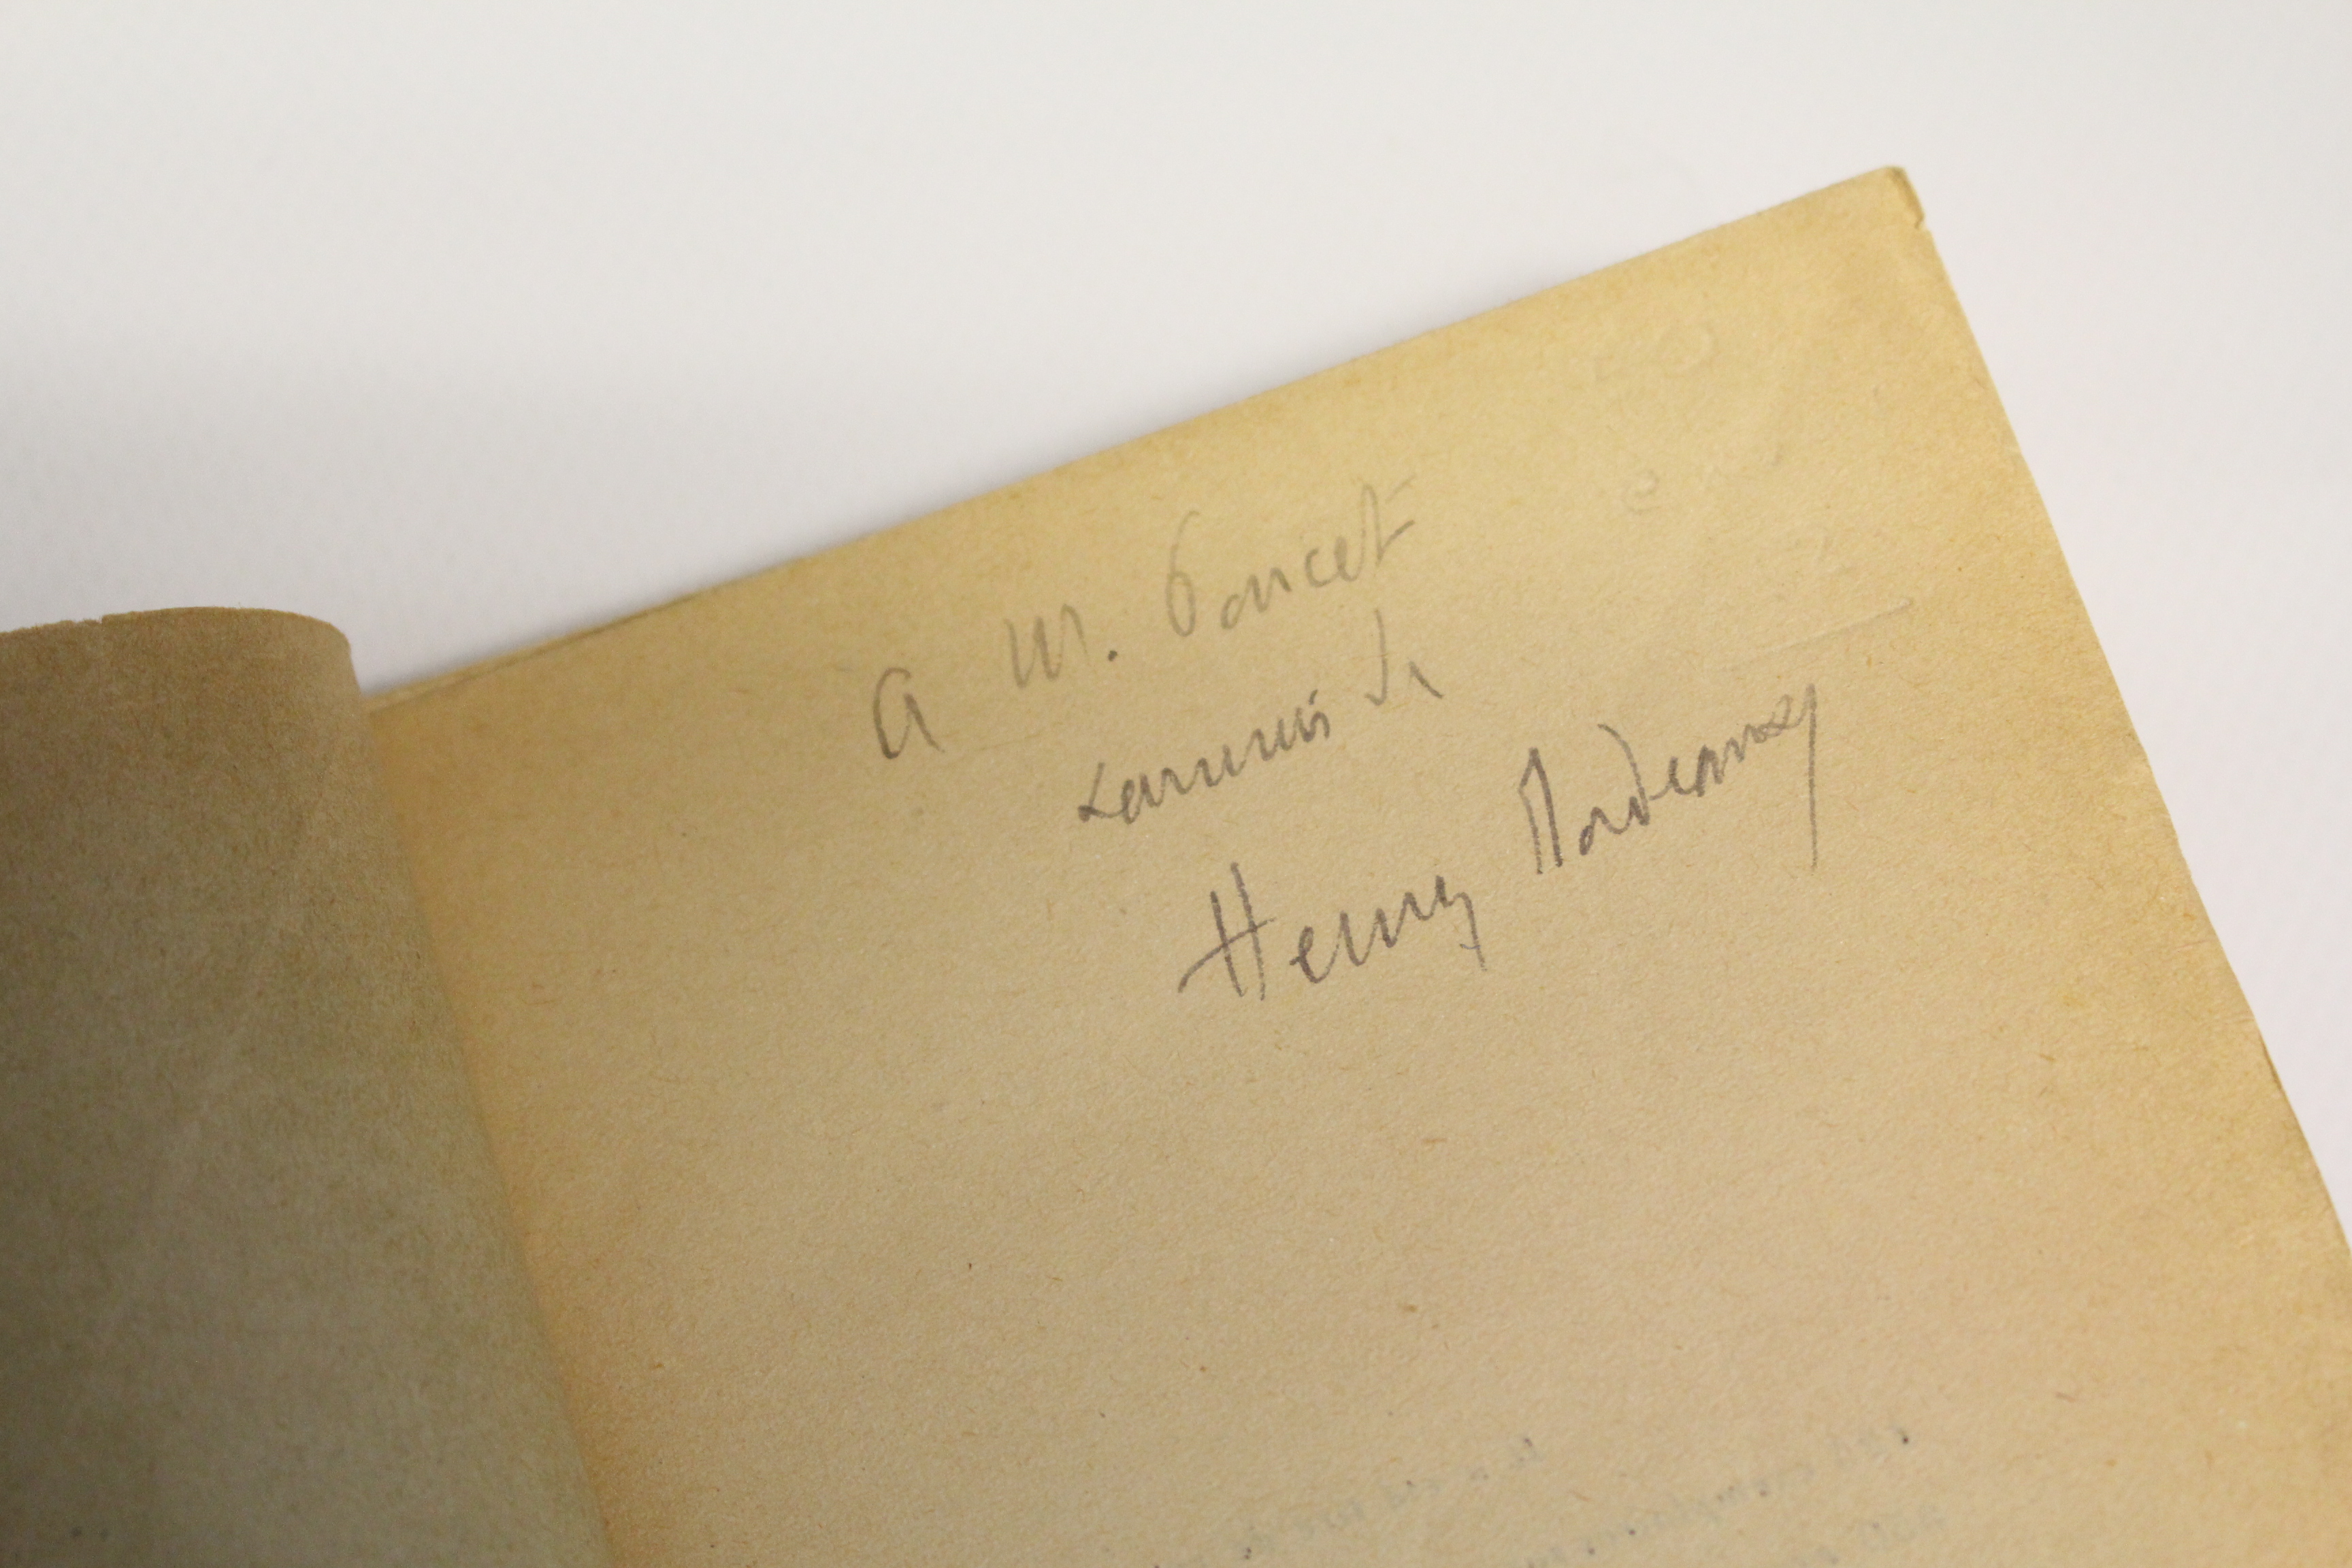 A M. Poncet
souvenir de
Henry Bordeaux